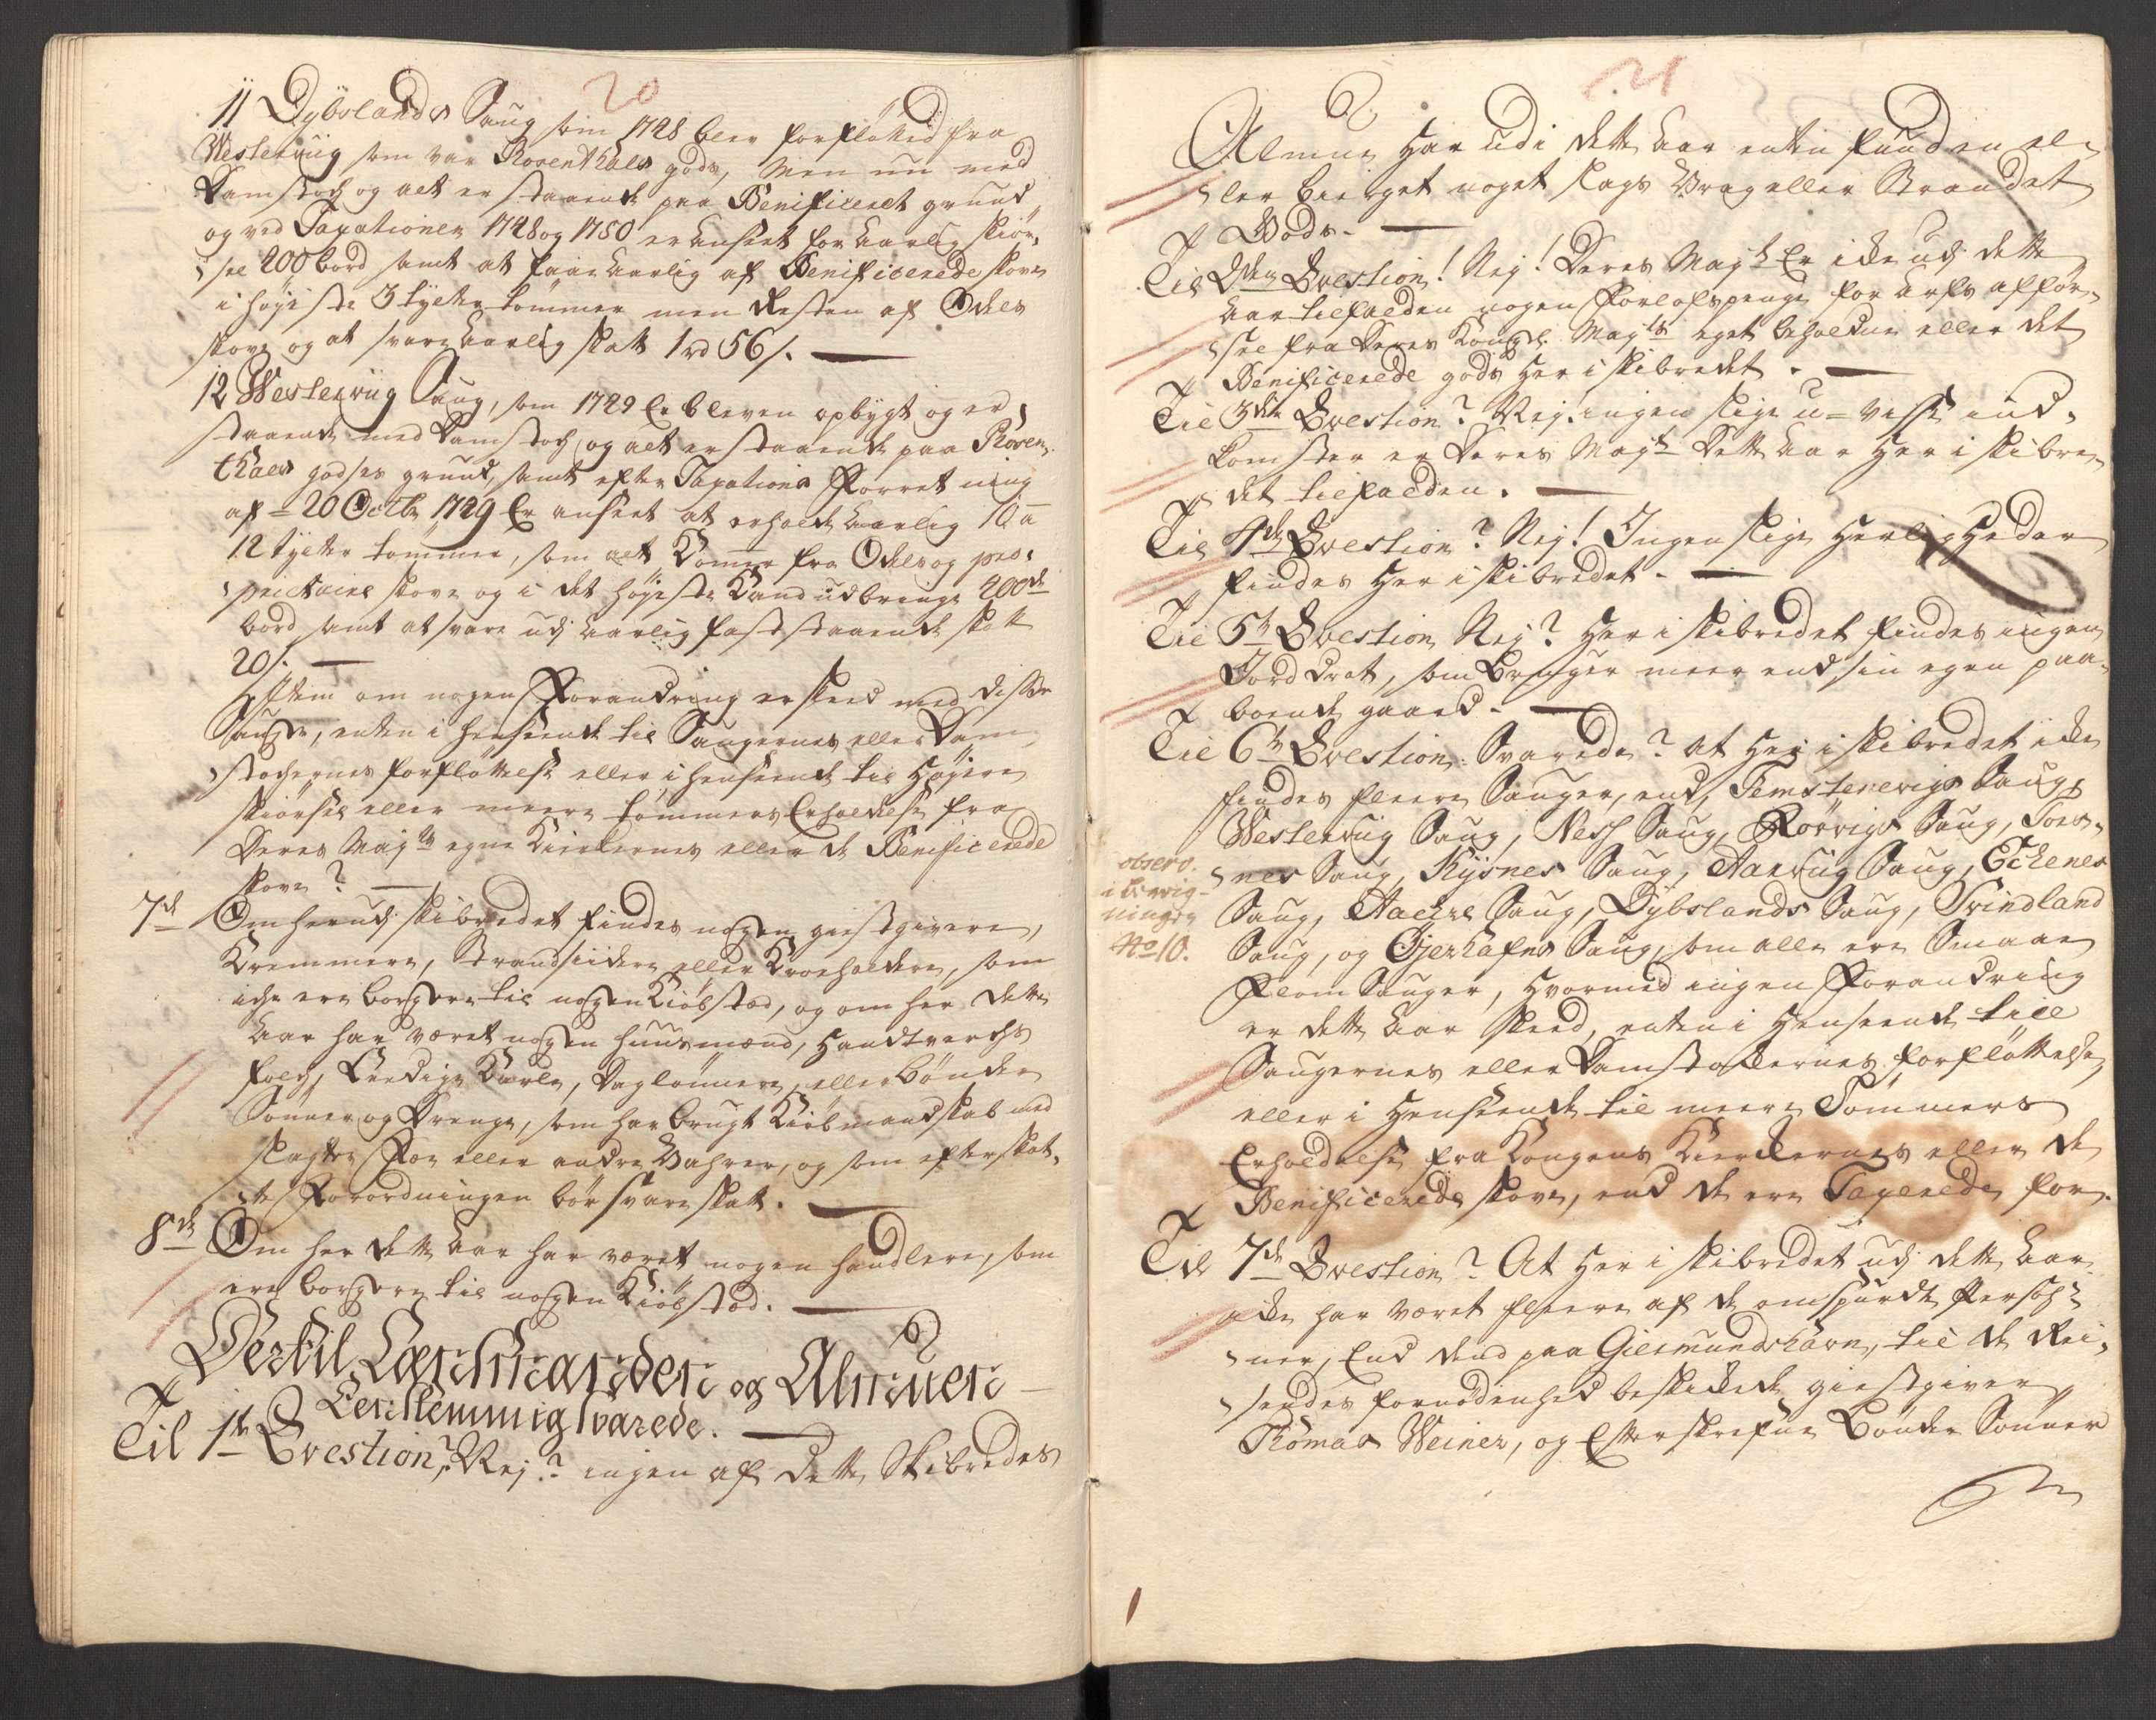 20
11 Dybslands Saug som 1748 blev forfløtted fra
Westerviig som var Rosenthals gods, Men nu med
Damstock og alt er staaende paa Benificeret grund,
og ved Taxationen 1748 og 1750 er anseet for Aarlig skiør¬
sel 200 bord samt at faae Aarlig af Benificerede skove
i højeste 3 tylter tømmer men Resten af Odels
skove og at svare Aarlig skatt 1 rd 56 s.
12 Westerviig Saug, som 1749 Er bleven opbygt og er
staaende med Damstock og alt er staaende paa Rosen¬
thals godses grund, samt efter Taxations Forretning
af 20 Octb: 1749 Er anseet at erholde Aarlig 10 a
12 tylter tømmer, som alt Kommer fra Odels og pro¬
prietaire skove og i det højeste Kand udbringe 200de
bord samt at svare udj Aarlig faststaaende skatt
20 s.
Item om nogen Forandring er skeed med disse
Sauge, enten i henseende til Saugernes eller Dam¬
stockernes forfløttelse eller i henseende til højere
skiørsel eller meere tømmers Erholdelse fra
Deres Majts egne Kirkernes eller de Benificerede
skove?
7de Om herudj skibredet findes nogen giestgivere,
Kremmere, Strandsiddere eller Kroeholdere, som
iche ere borgere til nogen Kiøbstæd, og om her dette
Aar har været nogen huusmænd, handtverchs
folch, Leedige Karle, Daglønnere, eller bønder
Sønner og Drenge, som har brugt Kiøbmandskab med
slagter Fæe eller andre Vahrer, og som efter skat¬
te Forordningen bør svare skatt.
8de Om her dette Aar har været nogen handlere, som
ere borgere til nogen Kiøbstæd.
Dertil Lænsmanden og Almuen
Eenstemmig svarede.
Til 1te Qvestion? Nej? ingen af dette Skibredes
21
Almue har udi dette Aar enten funden el¬
ler bierget noget slags Vrag eller Strandet
Gods.
Til 2den Qvestion! Nej! Deres Majt Er icke udj dette
Aar tilfalden nogen Forlofspenge for arfs afför¬
sel fra Deres Kongl. Majts eget beholdne eller det
Benificerede gods her i skibredet.
Til 3die Qvestion? Nej. ingen slige u=visse ind¬
komster er Deres Majt dette Aar her i skibre¬
det tilfalden.
Til 4de Qvestion? Nej! Ingen slige Herligheder
findes her i skibredet.
Til 5te Qvestion Nej? Her i skibredet findes ingen
Jorddrot, som Bruger meer end sin egen paa¬
boende gaard.
Til 6te Qvestion: Svarede? At her i skibredet icke
findes fleere Sauger, end, Femstenevigs Saug,
Westerviig Saug, Nesh Saug, Rørvigs Saug, Tors¬
nes Saug, Kysnes Saug, Aarviig Saug, Echenes
Saug, Aachre Saug, Dybslands Saug, Svindland
Saug, og Gjerhafns Saug, som alle ere Smaae
Flom Sauger, hvormed ingen Forandring
er dette Aar skeed, enten i Henseende till
Saugernes eller Damstockernes forfløttelse,
eller i Henseende til meere Tømmers
Erholdelse fra Kongens Kierkernes eller de
Benificerede skove, end de ere Taxerede for.
observ.
No 10.
Til 7de Qvestion? At her i skibredet udj dette Aar
icke har været fleere af de omspurdte Persoh¬
ner, End dend paa Giermundshavn, til de Rei¬
sendes fornødenhed beskickede giestgiver
Thomas Weiner, og Efterskrefne Bønder Sønner